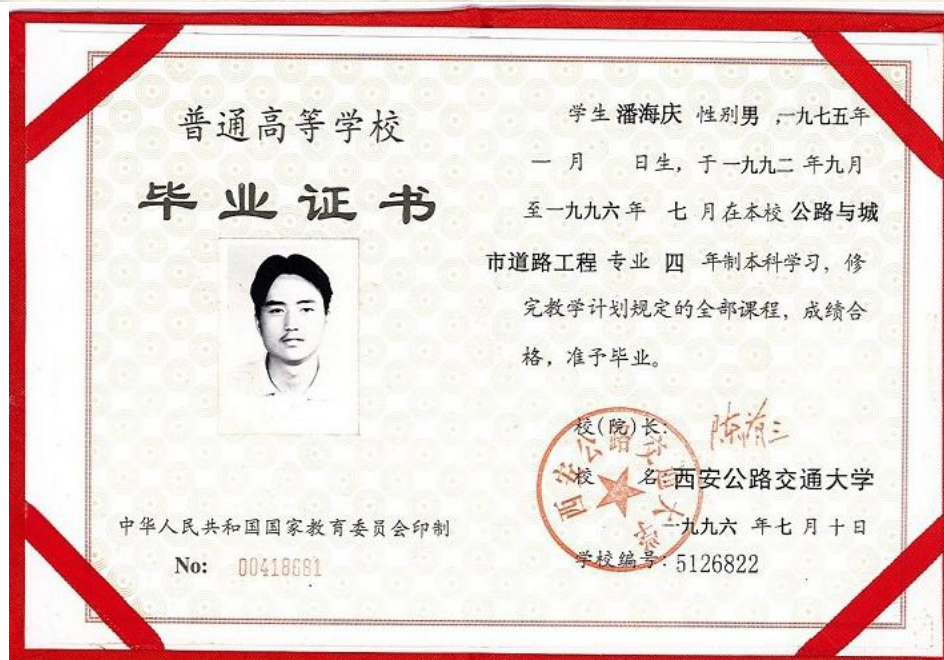 普通高等学校
毕业证书
中华人民共和国国家教育委员会印制
No: 00418681
学生 潘海庆 性别 男 ,一九七五年
一 月 日生，于一九九二 年九月
至一九九六年 七 月在本校 公路与城
市道路工程 专业 四 年制本科学习，修
完教学计划规定的全部课程，成绩合
格，准予毕业。
校(院)长:
校 名 西安公路交通大学
一九九六 年七月十日
学校编号: 5126822
西安公路交通大学